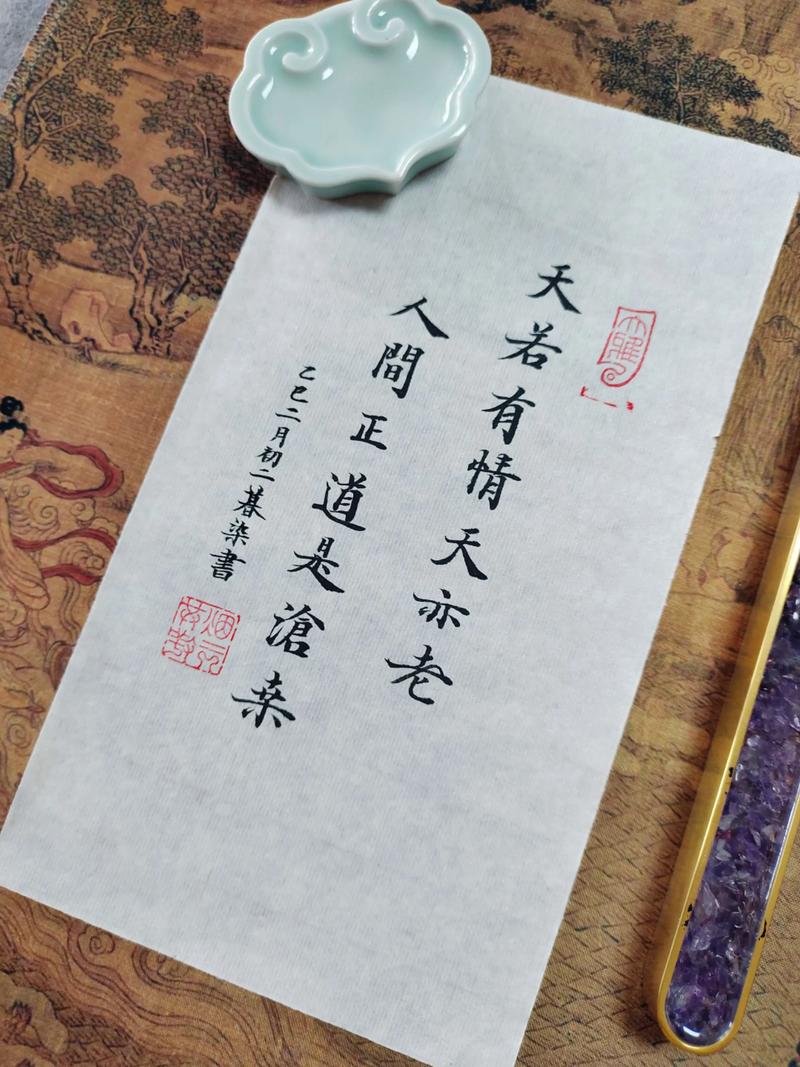 天若有情天亦老
人間正道是滄桒
乙巳二月初二暮染書